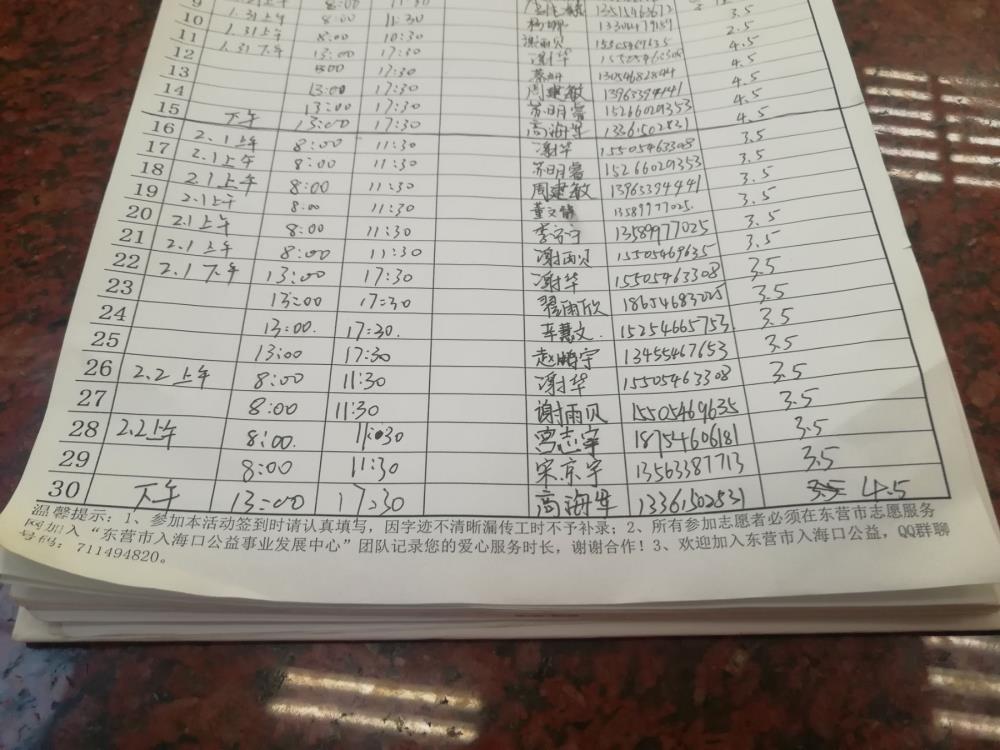 9 1.31上午 8:00 11:30 3.5
10 1.31上午 8:00 10:30 谢雨贝 15505469635 2.5
11 1.31下午 13:00 17:30 谢华 15505463308 4.5
12 13:00 17:30 13054682844 4.5
13 13:00 17:30 周建敏 13963394441 4.5
14 13:00 17:30 苏明睿 15266029353 4.5
15 下午 13:00 17:30 高海生 13361502831 4.5
16 2.1上午 8:00 11:30 谢华 15505463308 3.5
17 2.1上午 8:00 11:30 苏明睿 15266029353 3.5
18 2.1上午 8:00 11:30 周建敏 13963394441 3.5
19 2.1上午 8:00 11:30 董文倩 13589977025. 3.5
20 2.1上午 8:00 11:30 李宁宁 13589977025 3.5
21 2.1上午 8:00 11:30 谢雨贝 15505469635 3.5
22 2.1下午 13:00 17:30 谢华 15505463308 3.5
23 13:00 17:30 翟雨欣 18654683025 3.5
24 13:00. 17:30. 辛慧文. 15254665753 3.5
25 13:00 17:30 赵鹏宇 13455467653 3.5
26 2.2上午 8:00 11:30 谢华 15505463308 3.5
27 8:00 11:30 谢雨贝 15505469635 3.5
28 2.2上午 8:00. 11:30 宫志宇 18754606181 3.5
29 8:00 11:30 宋京宇 13563387713 3.5
30 下午 13:00 17:30 高海生 13361502531 3.5 4.5
温馨提示：1、参加本活动签到时请认真填写，因字迹不清晰漏传工时不予补录；2、所有参加志愿者必须在东营市志愿服务
网加入“东营市入海口公益事业发展中心”团队记录您的爱心服务时长，谢谢合作！3、欢迎加入东营市入海口公益，QQ群聊
号码：711494820。